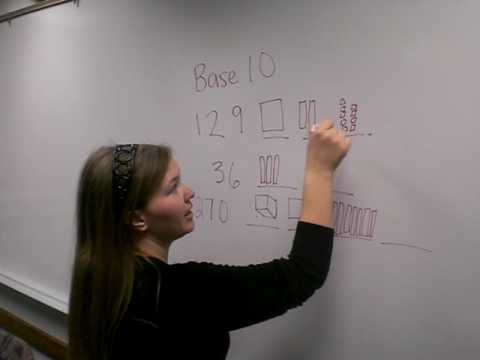 Base 10
129
36
270